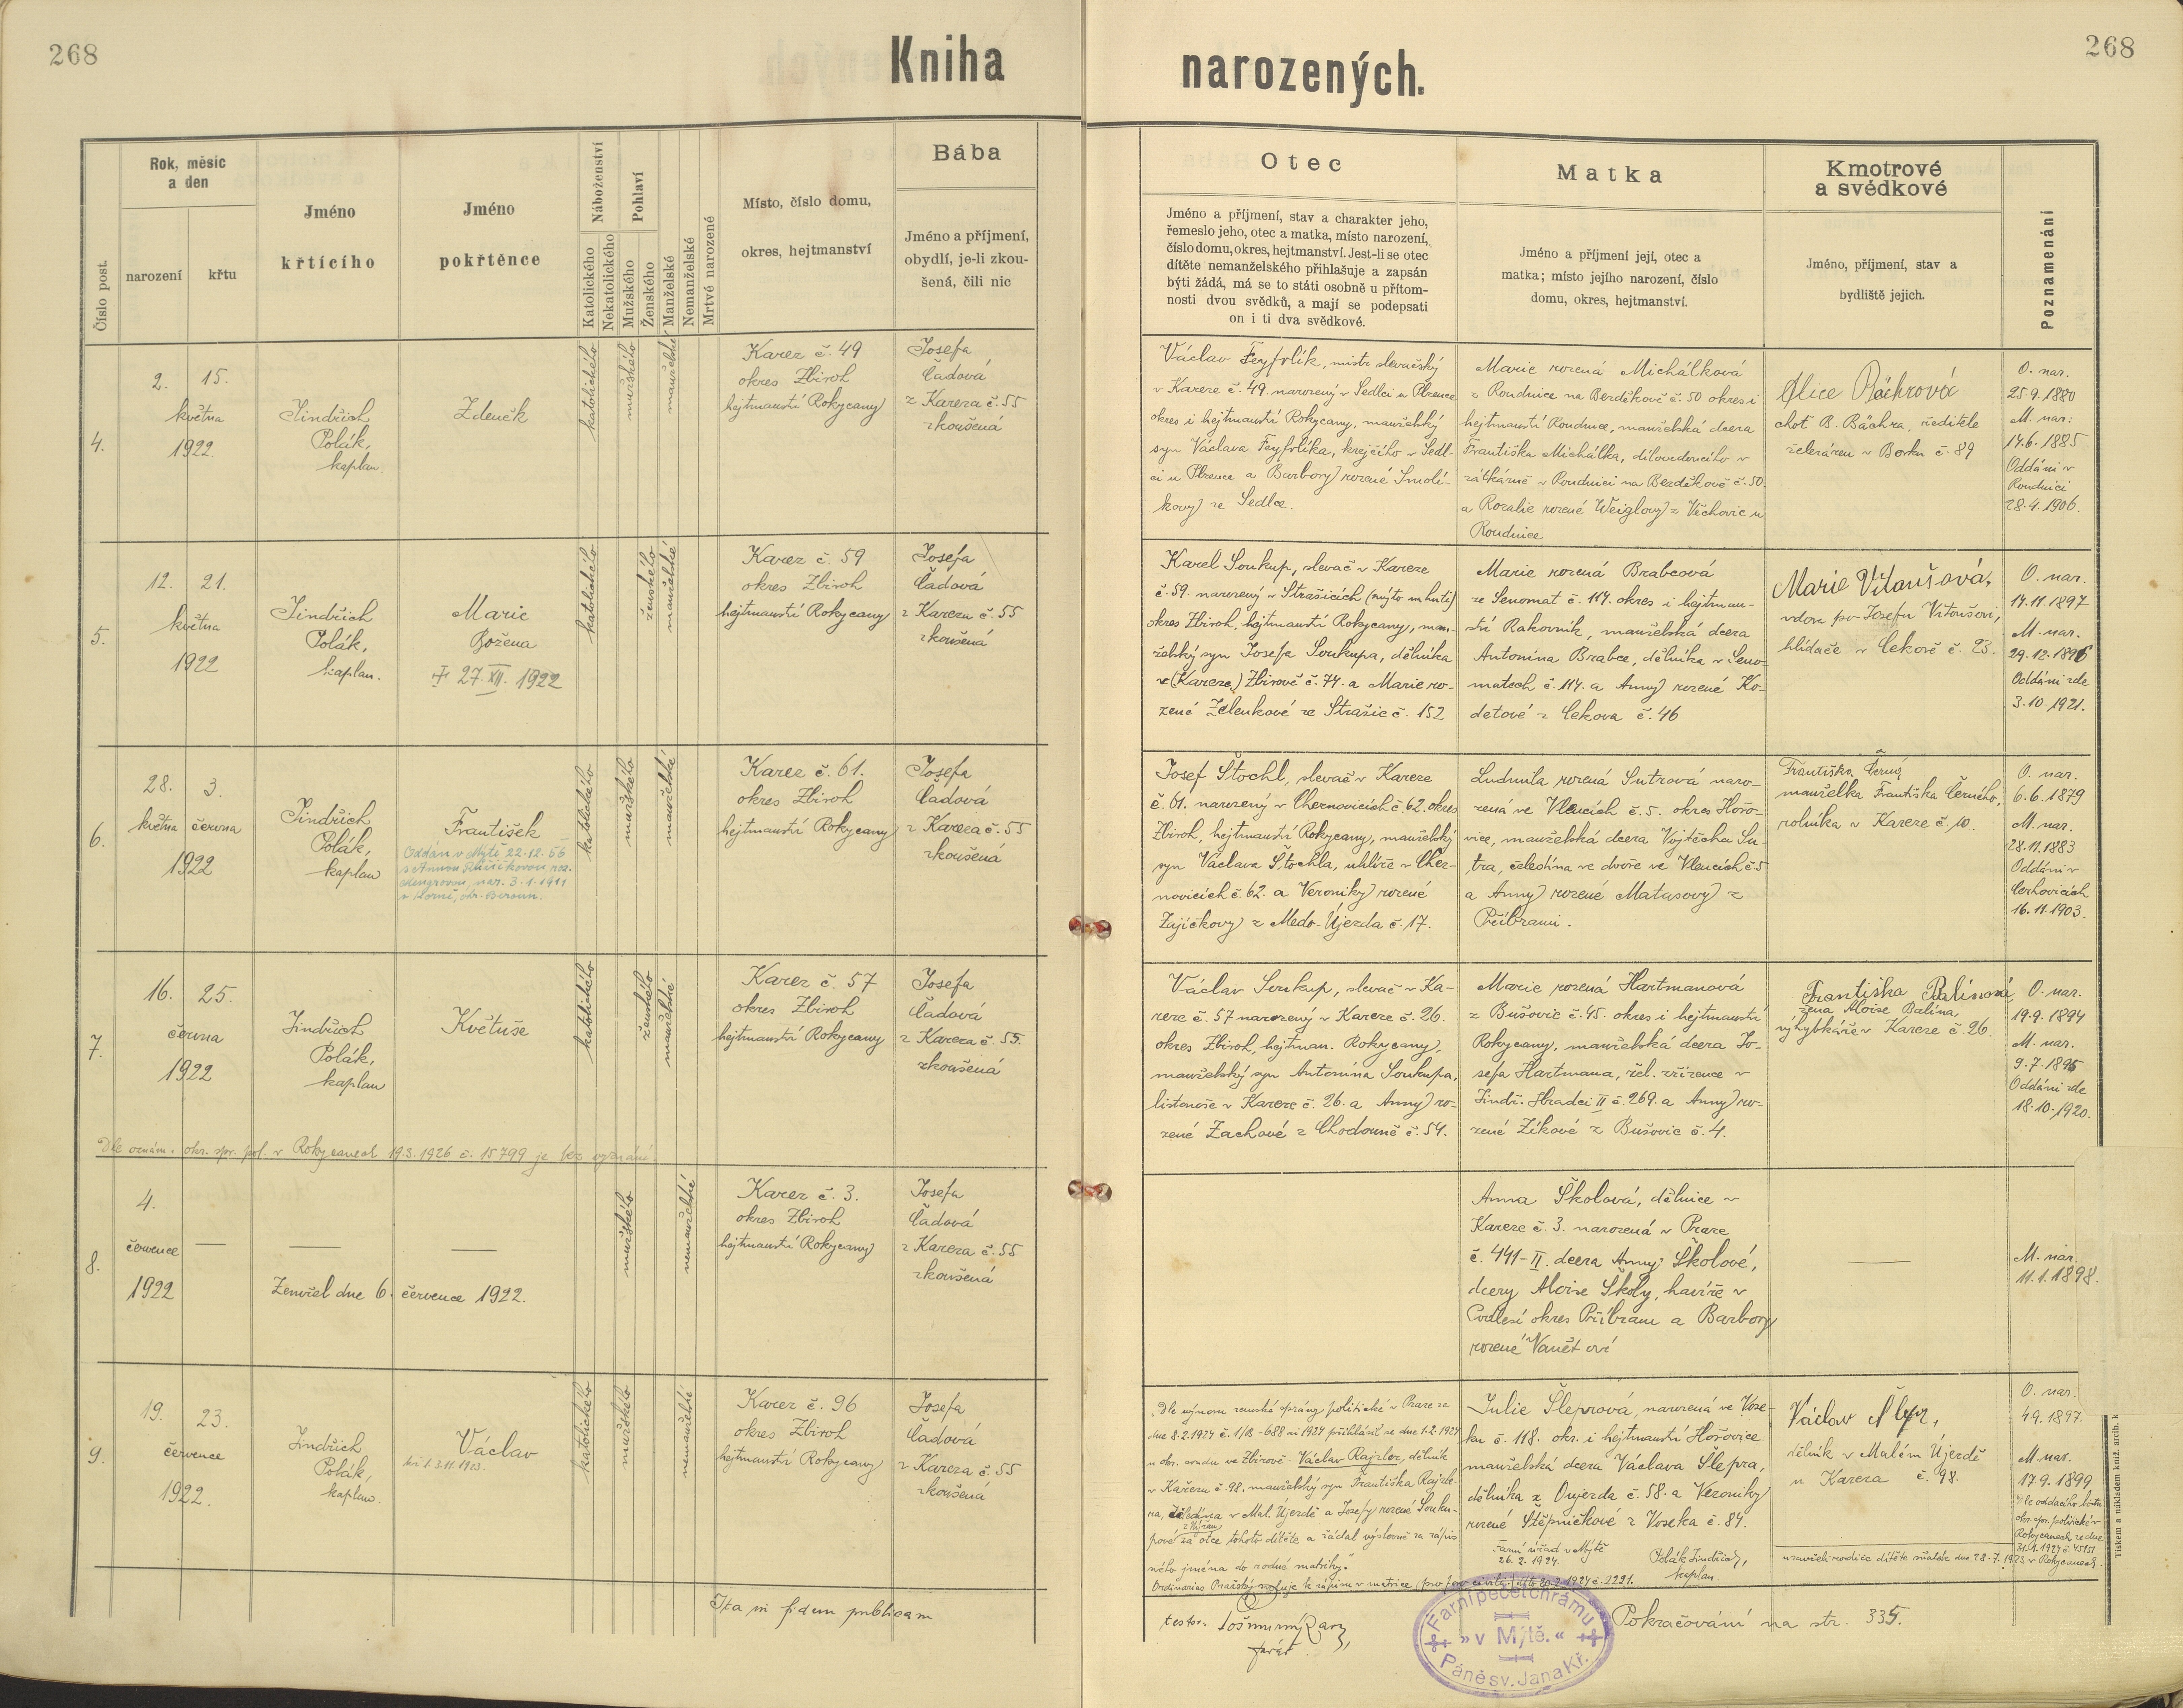 268
Kniha
narozených.
268
Číslo post.
Rok, měsíc
a den
narození
křtu
Jméno
křtícího
Jméno
pokřtěnce
Náboženství
Katolického
Nekatolického
Pohlaví
Mužského
Ženského
Manželské
Nemanželské
Mrtvě narozené
Místo, číslo domu,
okres, hejtmanství
Bába
Jméno a příjmení,
obydlí, je-li zkou-
šená, čili nic
Otec
Jméno a příjmení, stav a charakter jeho,
řemeslo jeho, otec a matka, místo narození,
číslo domu, okres, hejtmanství. Jest-li se otec
dítěte nemanželského přihlašuje a zapsán
býti žádá, má se to státi osobně u přítom-
nosti dvou svědků, a mají se podepsati
on i ti dva svědkové.
Matka
Jméno a příjmení její, otec a
matka; místo jejího narození, číslo
domu, okres, hejtmanství.
Kmotrové
a svědkové
Jméno, příjmení, stav a
bydliště jejich.
Poznamenání
4.
2. 15.
května
1922
Jindřich
Polák,
kaplan.
Zdeněk
katolického
mužského
manželské
Karez č. 49
okres Zbiroh
hejtmanství Rokycany
Josefa
Čadová
z Kareza č. 55
zkoušená
Václav Feyfrlík, mistr slevačský
v Kareze č. 49. narozený v Sedlci u Plzence
okres i hejtmanství Rokycany, manželský
syn Václava Feyfrlíka, krejčího v Sedl-
ci u Plzence a Barbory rozené Smolí-
kovy ze Sedlce.
Marie rozená Michálková
z Roudnice na Bezděkově č. 50 okres i
hejtmanství Roudnice, manželská dcera
Františka Michálka, dílovedoucího v
zátkárně v Roudnici na Bezděkově č. 50.
a Rozalie rozené Weiglovy z Věchovic u
Roudnice
Alice Bächrová
choť B. Bächra, ředitele
železáren v Borku č. 89
O. nar.
25.9.1880
M. nar:
14.6.1885
Oddáni v
Roudnici
28.4.1906.
5.
12. 21.
května
1922
Jindřich
Polák,
kaplan.
Marie
Božena
† 27. XII. 1922
katolického
ženského
manželské
Karez č. 59
okres Zbiroh
hejtmanství Rokycany
Josefa
Čadová
z Kareza č. 55
zkoušená
Karel Soukup, slevač v Kareze
č. 59. narozený v Strašicích (mýto u huti)
okres Zbiroh, hejtmanství Rokycany, man-
želský syn Josefa Soukupa, dělníka
v (Kareze) Zbirově č. 74. a Marie ro-
zené Zelenkové ze Strašic č. 152
Marie rozená Brabcová
ze Senomat č. 114. okres i hejtman-
ství Rakovník, manželská dcera
Antonína Brabce, dělníka v Seno-
matech č. 114. a Anny rozené Ko-
detové z Cekova č. 46
Marie Vitoušová,
vdova po Josefu Vitoušovi,
hlídače v Cekově č. 23.
O. nar.
14.11.1897
M. nar.
29.12.1896
Oddáni zde
3.10.1921.
6.
28. 3.
května června
1922
Jindřich
Polák,
kaplan
František
Oddán v Mýtě 22.12.56
s Annou Růžičkovou roz.
nar. 3.1.1911
okr. Beroun.
katolického
mužského
manželské
Karez č. 61.
okres Zbiroh
hejtmanství Rokycany
Josefa
Čadová
z Kareza č. 55
zkoušená
Josef Štochl, slevač v Kareze
č. 61. narozený v Cheznovicích č. 62. okres
Zbiroh, hejtmanství Rokycany, manželský
syn Václava Štochla, uhlíře v Chez-
novicích č. 62. a Veroniky rozené
Zajíčkovy z Medo-Újezda č. 17.
Ludmila rozená Sutrová naro-
zená ve Vlencích č. 5. okres Hořo-
vice, manželská dcera Vojtěcha Su-
tra, čeledína ve dvoře ve Vlencích č. 5
a Anny rozené Matasovy z
Příbrami.
Františka Černá
manželka Františka Černého,
rolníka v Kareze č. 10.
O. nar.
6.6.1879
M. nar.
28.11.1883
Oddáni v
Cerhovicích
16.11.1903.
7.
16. 25.
června
1922
Jindřich
Polák,
kaplan
Květuše
katolického
ženského
manželské
Karez č. 57
okres Zbiroh
hejtmanství Rokycany
Josefa
Čadová
z Kareza č. 55.
zkoušená
Dle oznám. okr. spr. pol. v Rokycanech 19.3.1926 č. 15799 je bez vyznání.
Václav Soukup, slevač v Ka-
reze č. 57 narozený v Kareze č. 26.
okres Zbiroh, hejtman. Rokycany,
manželský syn Antonína Soukupa,
listonoše v Kareze č. 26. a Anny ro-
zené Zachové z Chodouně č. 54.
Marie rozená Hartmanová
z Bušovic č. 45. okres i hejtmanství
Rokycany, manželská dcera Jo-
sefa Hartmana, žel. zřízence v
Jindř. Hradci II č. 269. a Anny ro-
zené Zíkové z Bušovic č. 4.
Františka Balínová
žena Aloise Balína,
výhybkáře v Kareze č. 26.
O. nar.
19.9.1894
M. nar.
9.7.1895
Oddáni zde
18.10.1920.
8.
4.
července
1922
Zemřel dne 6. července 1922.
mužského
nemanželské
Karez č. 3.
okres Zbiroh
hejtmanství Rokycany
Josefa
Čadová
z Kareza č. 55
zkoušená
Anna Školová, dělnice v
Kareze č. 3. narozená v Praze
č. 441-II. dcera Anny Školové,
dcery Aloise Školy, havíře v
okres Příbram a Barbory
rozené
M. nar.
11.1.1898.
9.
19. 23.
července
1922.
Jindřich
Polák,
kaplan.
Václav
katolického
mužského
nemanželské
Karez č. 96
okres Zbiroh
hejtmanství Rokycany
Josefa
Čadová
z Kareza č. 55
zkoušená
Dle výnosu zemské správy politické v Praze ze
dne 8.2.1924 č. 688 ai 1924 přihlásil se dne 1.2.1924
u okr. soudu ve Zbirově Václav Rajzler, dělník
v Kařezu č. 98. manželský syn Františka Rajzle-
ra, čeledína v Mal. Újezdě a Josefy rozené Souku-
pové za otce tohoto dítěte a žádal výslovně za zápis
svého jména do rodné matriky.
Ordinariat Pražský k zápisu v matrice (pro foro civili) 1924 č. 2291.
Julie Šleprová, narozená ve Vose-
ku č. 118. okr. i hejtmanství Hořovice
manželská dcera Václava Šlepra,
dělníka z Oujezda č. 58. a Veroniky
rozené Štěpničkové z Voseka č. 84.
Farní úřad v Mýtě
26.2.1924.
Polák Jindřich,
kaplan.
Václav Šlepr,
dělník v Malém Újezdě
u Kareza č. 98.
O. nar.
4.9.1897.
M. nar.
17.9.1899
Dle oddacího listu
okr. spr. politické v
Rokycanech ze dne
uzavřeli rodiče dítěte sňatek dne 28.7.1923 v Rokycanech.
Ita in fidem publicam
testor.
farář.
Farní pečeť chrámu
» v Mýtě. «
Páně sv. Jana Kř.
Pokračování na str. 335.
Tiskem a nákladem kníž. arcib. k